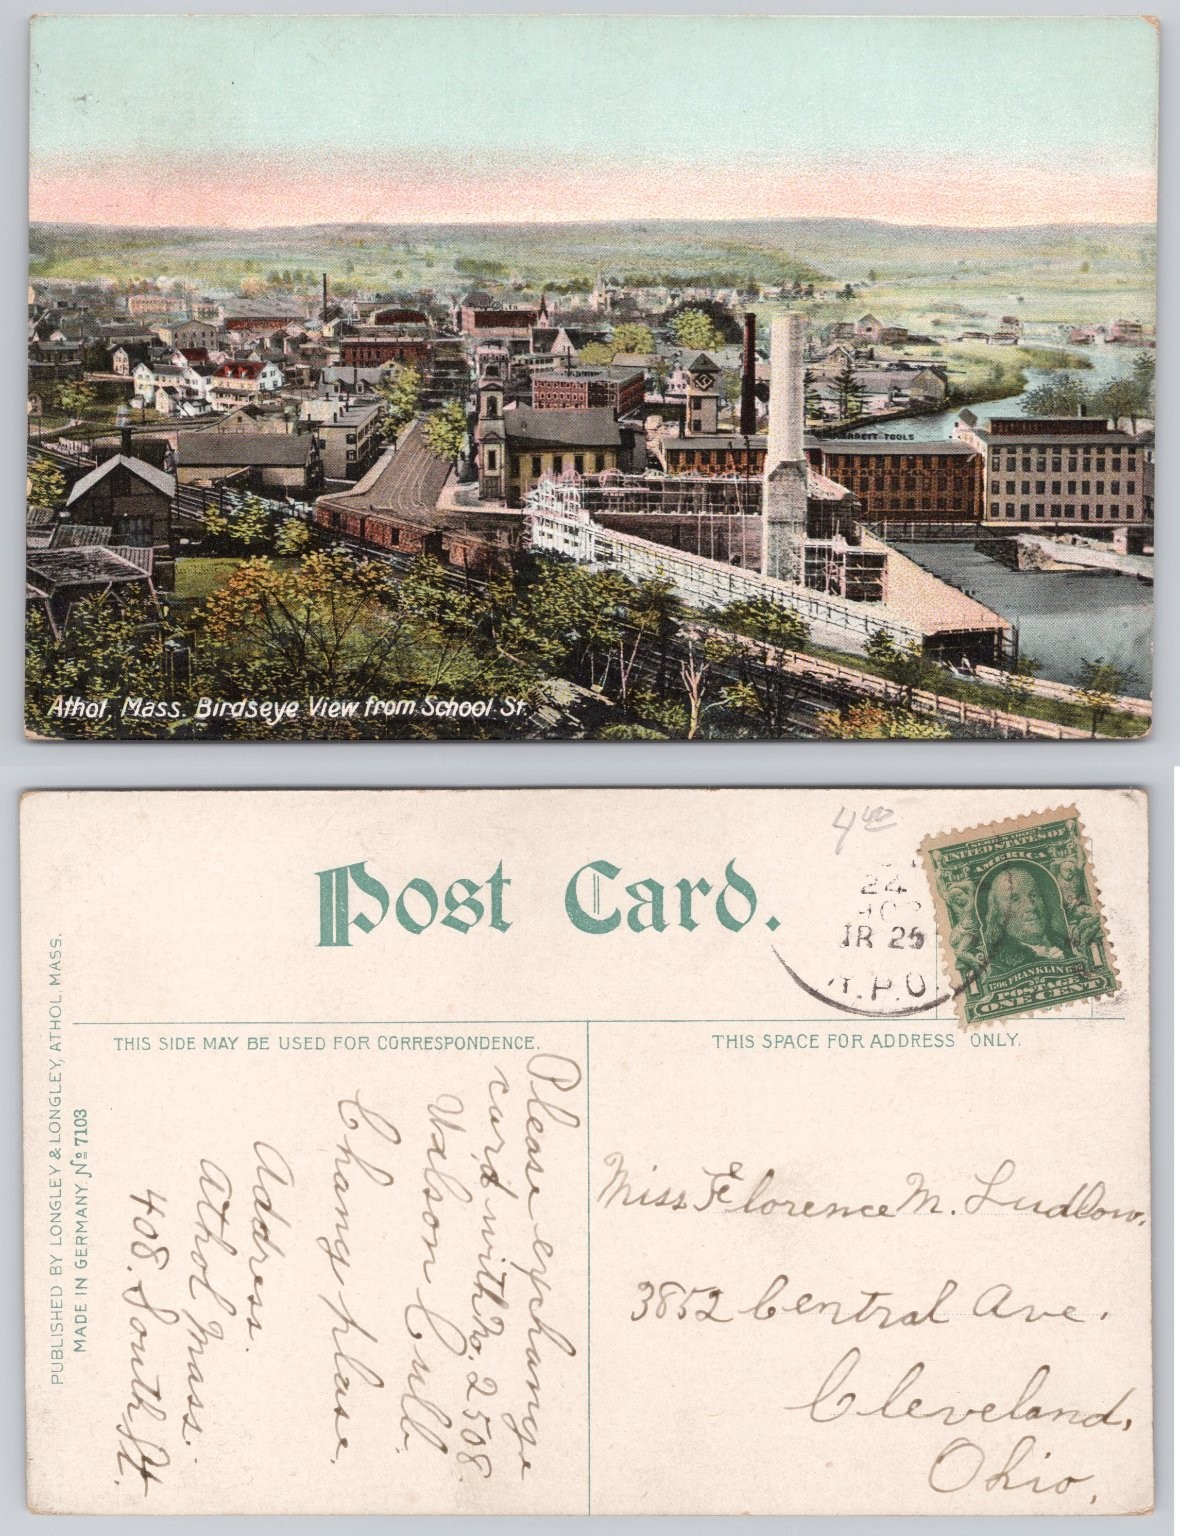 STARRETT TOOLS
Athol, Mass. Birdseye View from School St.
4 40
Post Card.
24
TR 25
R.P.O.
SERIES 1902
UNITED STATES OF
AMERICA
1706 FRANKLIN 1790
POSTAGE
1 ONE CENT 1
THIS SIDE MAY BE USED FOR CORRESPONDENCE.
THIS SPACE FOR ADDRESS ONLY.
PUBLISHED BY LONGLEY & LONGLEY, ATHOL, MASS.
MADE IN GERMANY № 7103
Please exchange
card with No. 2508.
Chang please.
Address.
Athol Mass.
408. South St.
Miss Florence M. Ludlow.
3852 Central Ave.
Cleveland,
Ohio.